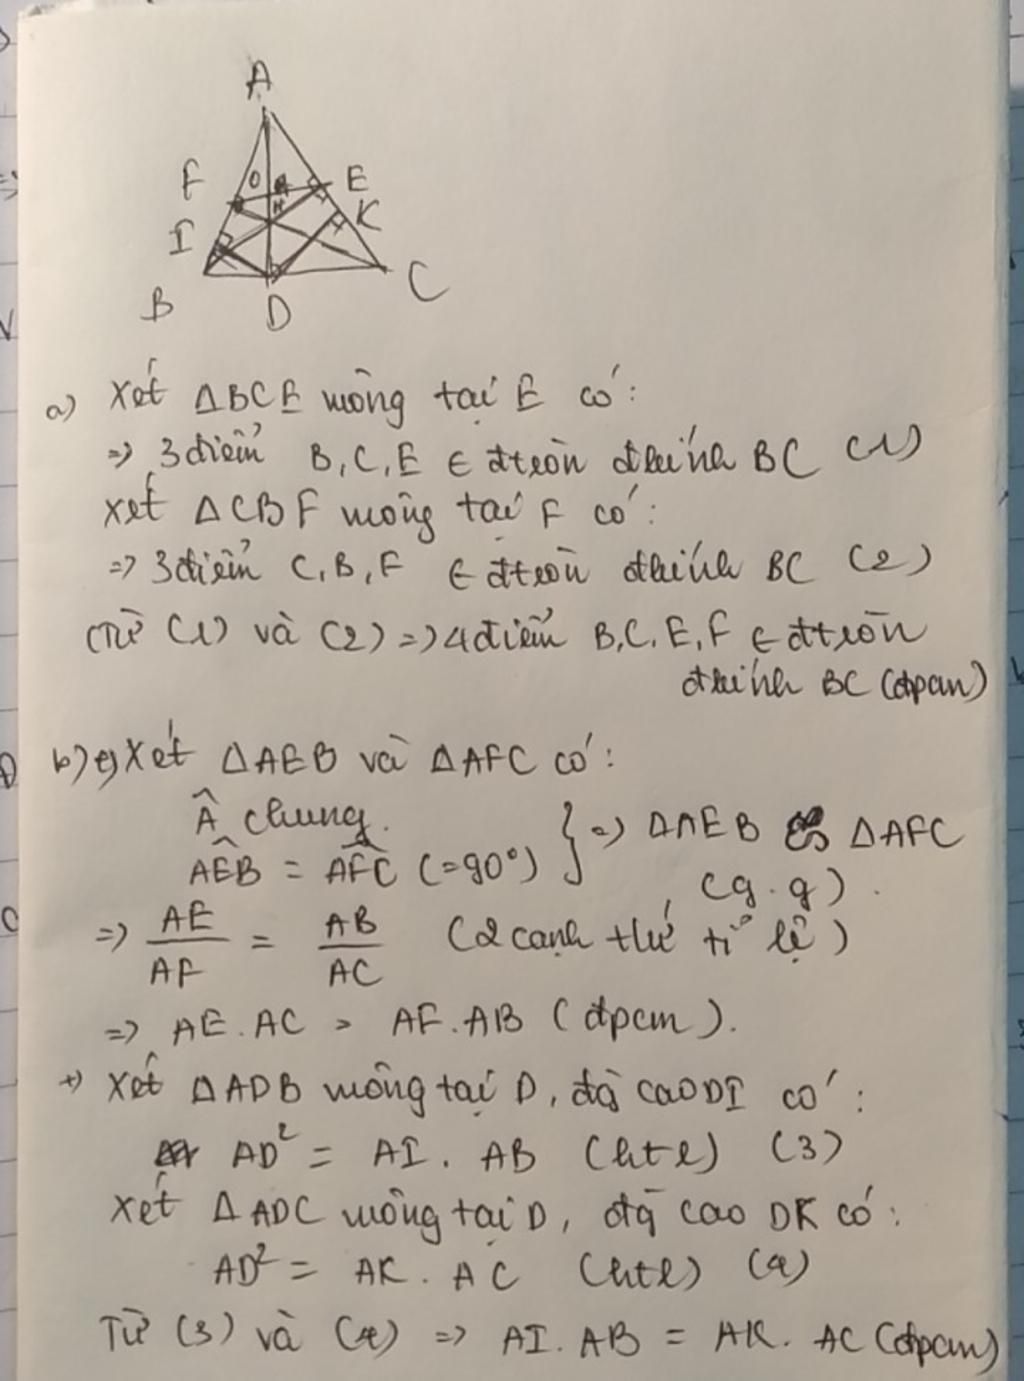 A
F O E
H
I K
B D C
a) Xét ΔBCE vuông tại E có:
=> 3 điểm B, C, E ∈ đtròn đkính BC (1)
Xét ΔCBF vuông tại F có:
=> 3 điểm C, B, F ∈ đtròn đkính BC (2)
Từ (1) và (2) => 4 điểm B, C, E, F ∈ đtròn
đkính BC (đpcm)
b) +) Xét ΔAEB và ΔAFC có:
Â chung
AÊB = AF̂C (=90°) } => ΔAEB ∽ ΔAFC
(g.g).
=> AE/AF = AB/AC (2 cạnh t/ứ tỉ lệ)
=> AE.AC = AF.AB (đpcm).
+) Xét ΔADB vuông tại D, đg cao DI có:
AD² = AI. AB (htl) (3)
Xét ΔADC vuông tại D, đg cao DK có:
AD² = AK. AC (htl) (4)
Từ (3) và (4) => AI. AB = AK. AC (đpcm)